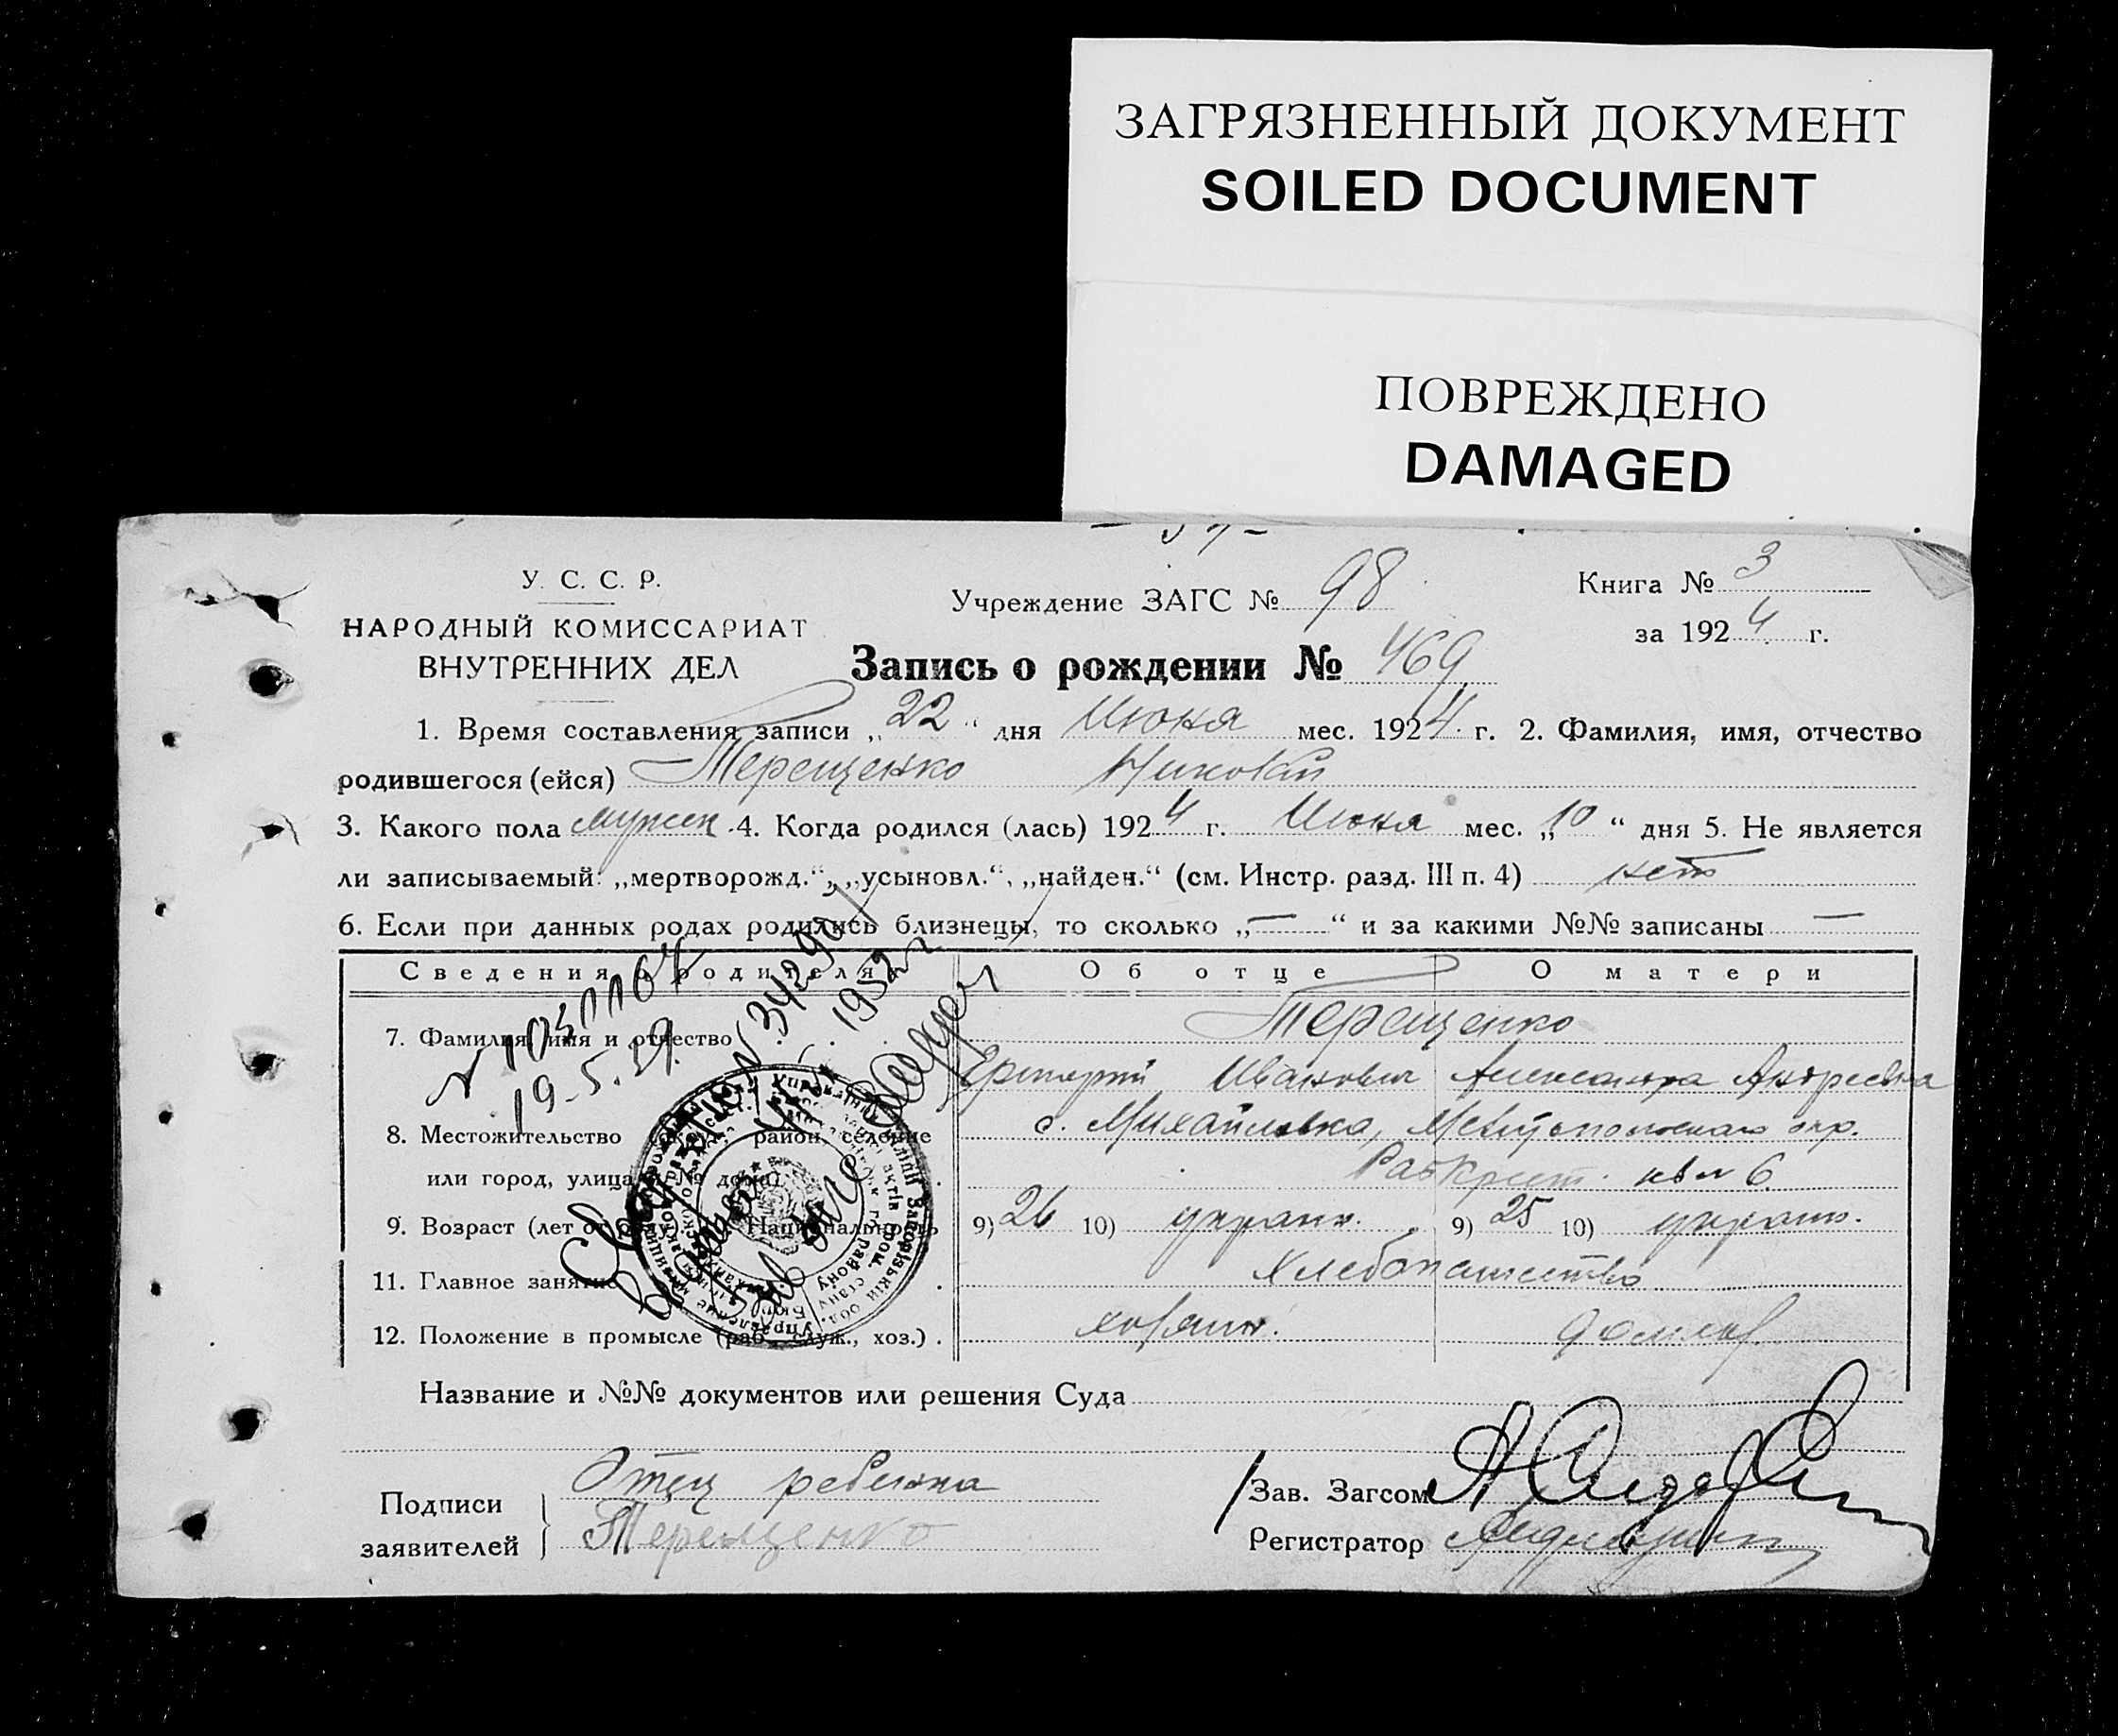 ЗАГРЯЗНЕННЫЙ ДОКУМЕНТ
SOILED DOCUMENT
ПОВРЕЖДЕНО
DAMAGED
У. С. С. Р.
НАРОДНЫЙ КОМИССАРИАТ
ВНУТРЕННИХ ДЕЛ
Учреждение ЗАГС № 98
Книга № 3
за 1924 г.
Запись о рождении № 469
1. Время составления записи „22“ дня Июня мес. 1924 г. 2. Фамилия, имя, отчество
родившегося (ейся) Терещенко
3. Какого пола мужск. 4. Когда родился (лась) 1924 г. Июня мес. „10“ дня 5. Не является
ли записываемый: „мертворожд.“, „усыновл.“, „найден.“ (см. Инстр. разд. III п. 4) нет
6. Если при данных родах родились близнецы, то сколько „—“ и за какими №№ записаны —
Сведения о родителях Об отце О матери
7. Фамилия, имя и отчество Терещенко
Иванович Александра Андреевна
19-5.39.
1952
8. Местожительство район, селение с. Михайловка, Мелитопольского окр.
или город, улица и № дома) 6
9. Возраст (лет от роду) Национальность 9) 26 10) украин. 9) 25 10) украин.
11. Главное занятие Хлебопашество
12. Положение в промысле (раб., служ., хоз.) хозяин.
Название и №№ документов или решения Суда
Подписи заявителей Отец ребенка
Терещенко
Зав. Загсом
Регистратор